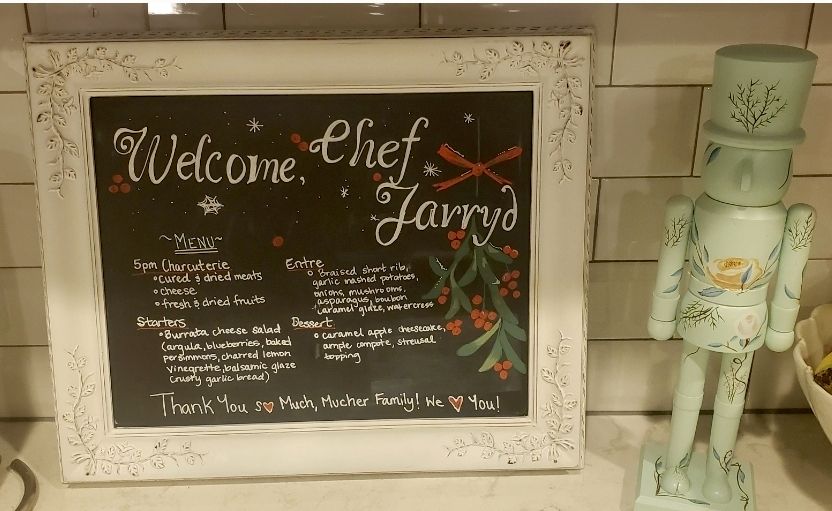 Welcome, Chef
Jarryd
~MENU~
5pm Charcuterie
• Cured & dried meats
• cheese
• fresh & dried fruits
Starters
• Burrata cheese salad
(arqula, blueberries, baked
persimmons, charred lemon
vinegrette, balsamic glaze
crusty garlic bread)
Entre
• Braised short rib,
garlic mashed potatoes,
onions, mushrooms,
asparagus, boubon
caramel glaze, watercress
Dessert
• caramel apple cheesecake,
ample compote, streusal
topping
Thank You so Much, Mucher Family! We ♥ You!